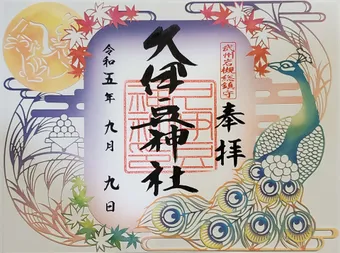 奉拝
武州岩槻総鎮守
久伊豆神社
令和五年九月九日